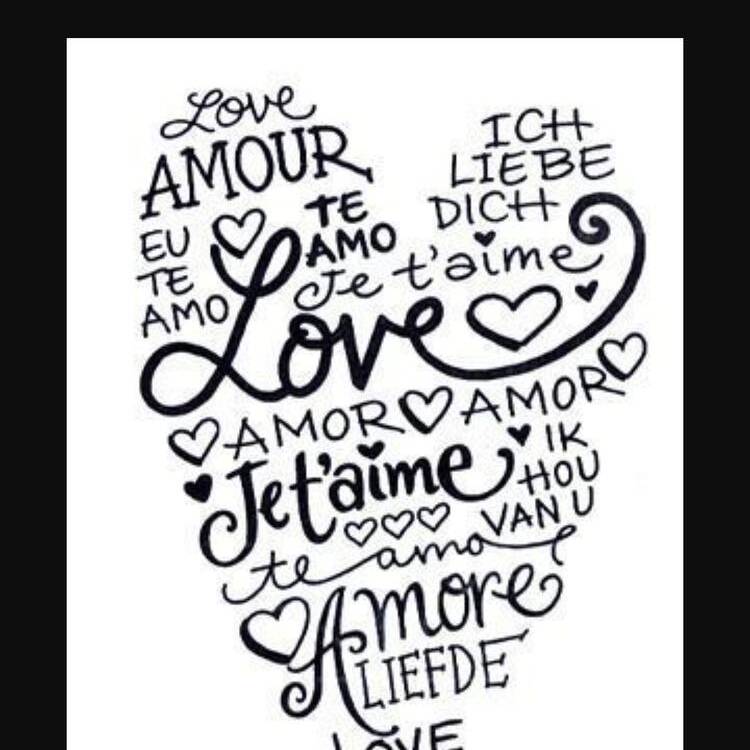 Love
AMOUR
ICH
LIEBE
DICH
EU
TE
AMO
TE
AMO
Je t'aime
Love
AMOR AMOR
Je t'aime
IK
HOU
VAN U
te amo
Amore
LIEFDE
LOVE